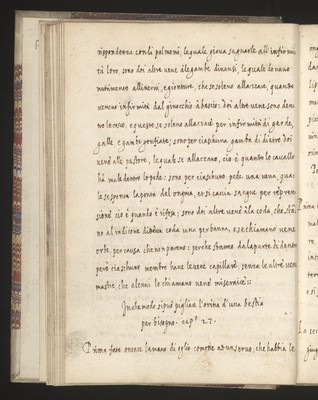 rispondenza con li polmoni, le quale giova saguarle all' infirmi
tà loro, sono doi altre vene alle gambe dinansi, le quale donano
nutrimento alli nervi, e gionture, che se soleno allazzare, quando
veneno infirmità dal ginocchio a basso: doi altre vene sono den
tro le coxe, e queste se soleno allazzare per infirmità di garde,
galle e gambe gonfiate, sono per ciaschuna gamba di dietro doi
vene alle pastore, le quale se allazzano, cio è quando lo cavallo
hà male dentro lo pede: sono per ciaschuno pede una vena, qua
le se sponta la ponta del ongnia, et si caccia sangue per repren
sione, cio è quando è rifoso; sono doi altre vene ala coda, che stan
no al radicone de la coda una per banno, e se chiamano vene
orbe, per causa che non pareno: perche stanno dala parte di dentro
però ciaschuno membro have le vene capillare, senza le altre vene
mastre, che alcuni le chiamano vene miseraice:
In che modo si può pigliar l'orina d'una bestia
per bisogno. cap.º 27.
Prima fate ongere la mano di oglio comone ad uno servo, che habbia le